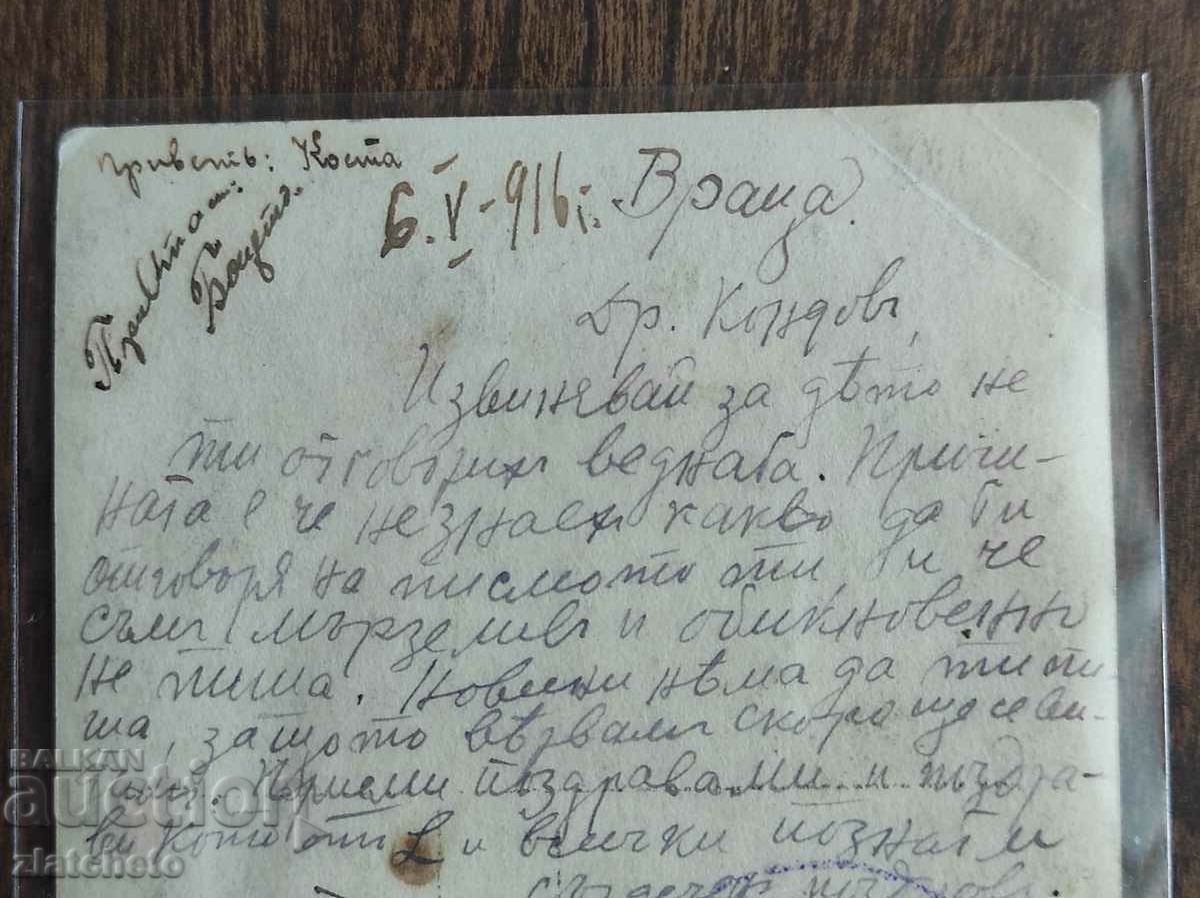 привѣтъ: Коста
6.V-916г. Враца.
Др. Кондовъ,
Извинявай за дѣто не
ти отговорихъ веднага. Причи-
ната е че незнаехъ какво да ти
отговоря на писмото ти, ти че
съмъ мързеливъ и обикновенно
не пиша. Новини нѣма да ти пи-
ша, защото вѣрвамъ скоро ще се ви-
димъ. Приеми поздрава ми и поздра-
ви и всички познати
BALKAN
auction
zlatcheto